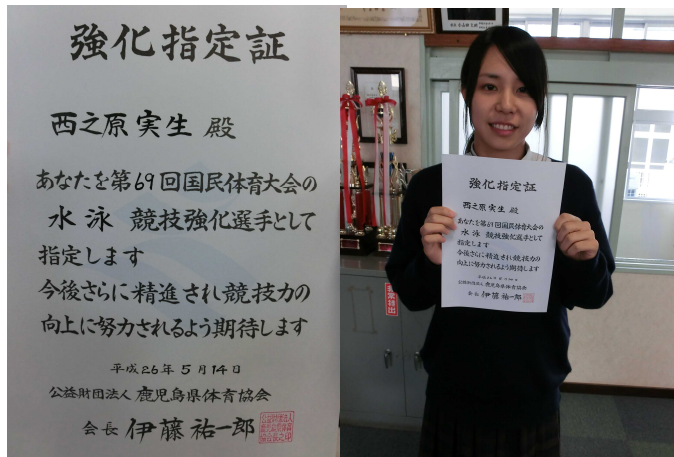 強化指定証
西之原実生 殿
あなたを第69回国民体育大会の
水泳 競技強化選手として
指定します
今後さらに精進され競技力の
向上に努力されるよう期待します
平成26年5月14日
公益財団法人 鹿児島県体育協会
会長 伊藤祐一郎
強化指定証
西之原実生 殿
あなたを第69回国民体育大会の
水泳 競技強化選手として
指定します
今後さらに精進され競技力の
向上に努力されるよう期待します
平成26年5月14日
公益財団法人 鹿児島県体育協会
会長 伊藤祐一郎
非常持出